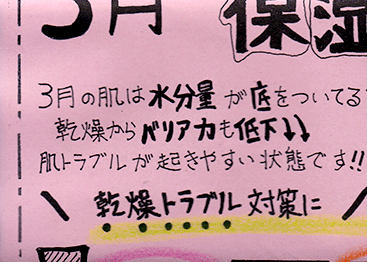 3月 保湿
3月の肌は水分量が底をついてる
乾燥からバリア力も低下↓↓
肌トラブルが起きやすい状態です!!
\ 乾燥トラブル対策に /